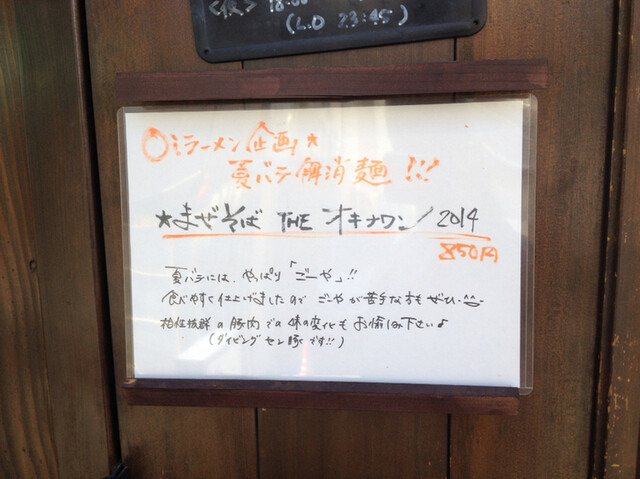 <夜> 18:00
(L.O 23:45)
○ミラーメン企画★
夏バテ解消麺!!!
★まぜそば THE オキナワン 2014
850円
夏バテには、やっぱり「ごーや」!!
食べやすく仕上げてましたので ごーやが苦手な方もぜひ^^
相性抜群の豚肉での味の変化もお愉しみ下さい♪
(ダイビング セン豚です!!)